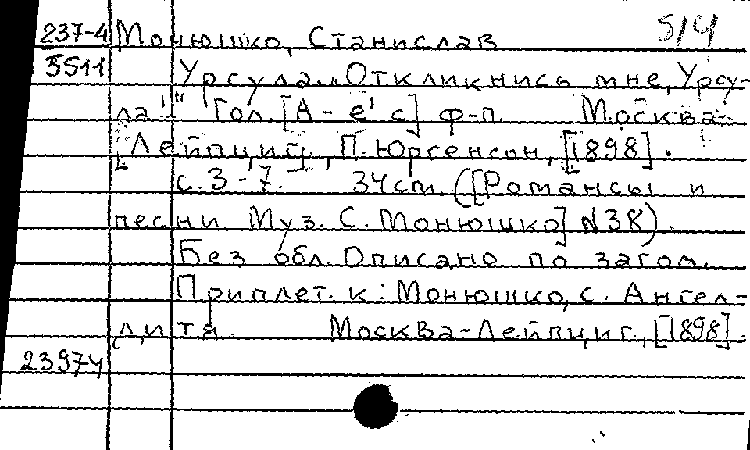 237-4 Монюшко, Станислав 5/4
5511 Урсула. "Откликнись мне, Урсу-
ла!" Гол. [A - e' с] ф-п. Москва-
Лейпциг, П. Юргенсон, [1898].
с. 3-7. 34cm. ([Романсы и
песни Муз. С. Монюшко] N 38).
Без обл. Описано по загол.
Приплет. к: Монюшко, С. Ангел-
дитя. Москва-Лейпциг, [1898].
23974